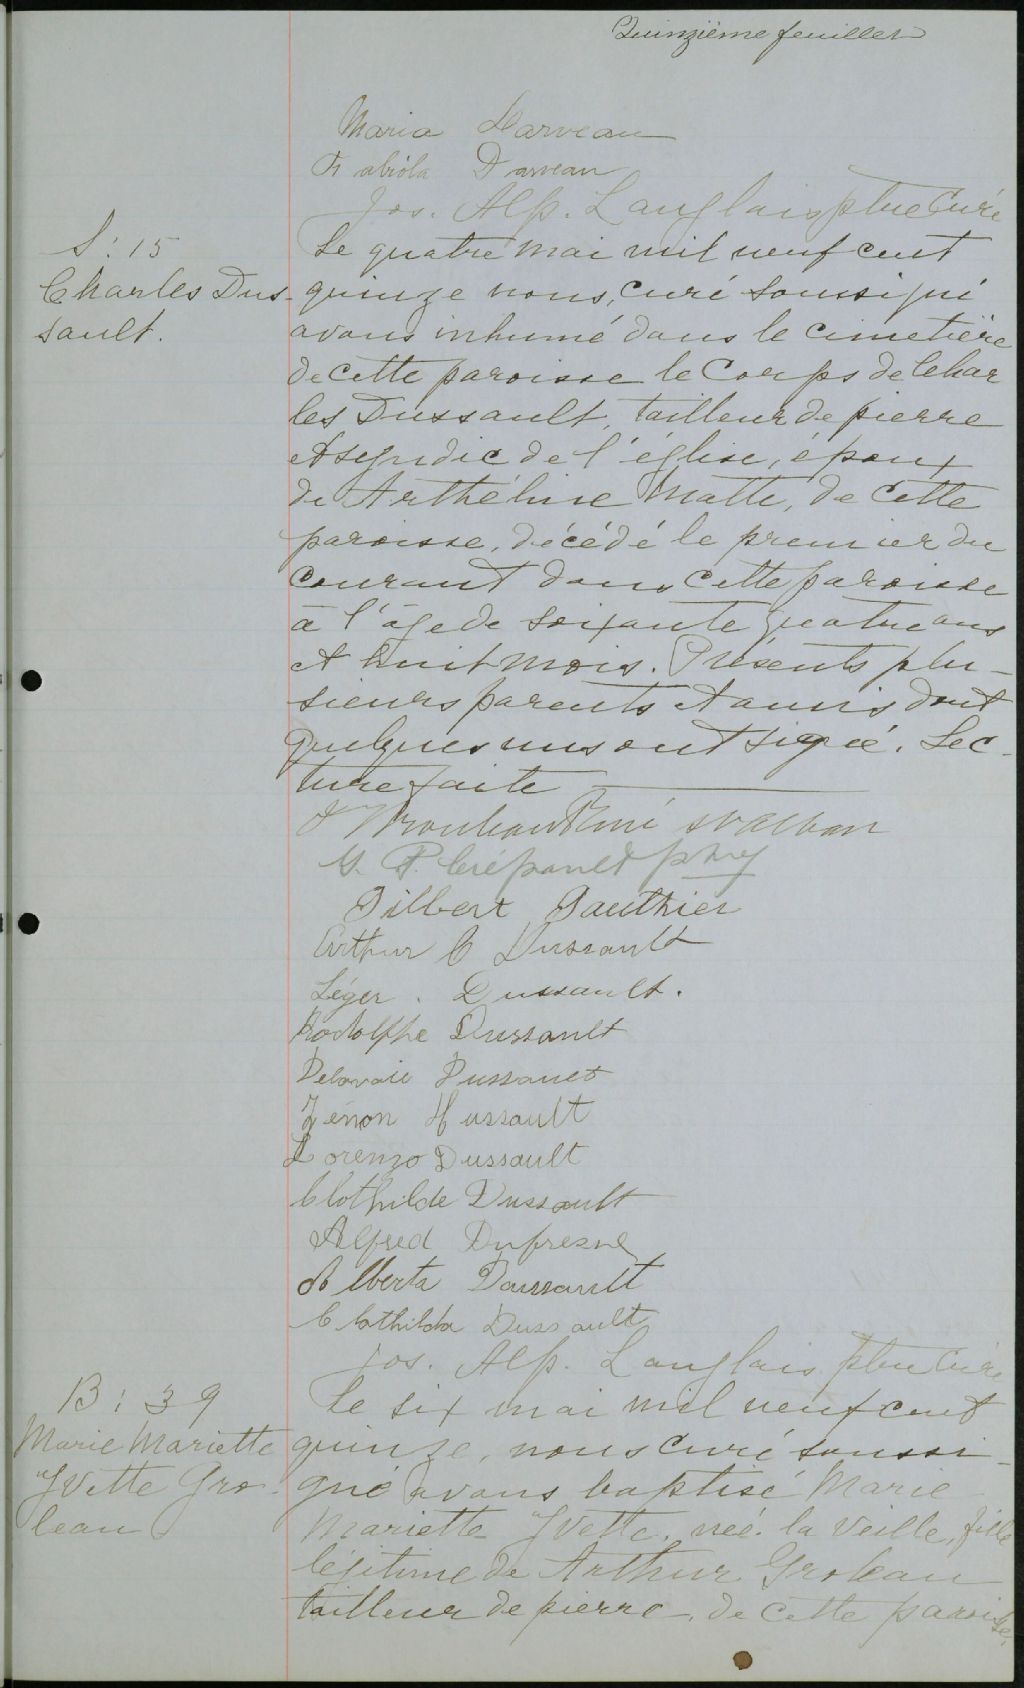 Quinzième feuillet
Maria Darveau
Fabiola Darveau
Jos. Alp. Langlais ptre Curé
S: 15
Charles Dus-
sault.
Le quatre mai mil neuf cent
quinze nous, curé soussigné
avons inhumé dans le cimetière
de cette paroisse le Corps de Char
les Dussault, tailleur de pierre
et syndic de l'église, époux
de Arthéline Matte, de cette
paroisse, décédé le premier du
courant dans cette paroisse
à l'âge de soixante quatre ans
et huit mois. Présents plu-
sieurs parents et amis dont
quelques uns ont signé. Lec-
ture faite
St Alban
G. P. Crépault ptre
Gilbert Gauthier
Arthur C Dussault
Léger . Dussault.
Rodolphe Dussault
Dussault
Zénon Dussault
Lorenzo Dussault
Clothilde Dussault
Alfred Dufresne
Alberta Dussault
Clothilda Dussault
Jos. Alp. Langlais ptre Curé
B: 39
Marie Mariette
Yvette Gro-
leau
Le six mai mil neuf cent
quinze, nous curé soussi-
gné avons baptisé Marie
Mariette Yvette, née la veille, fille
légitime de Arthur Groleau
tailleur de pierre, de cette paroisse,